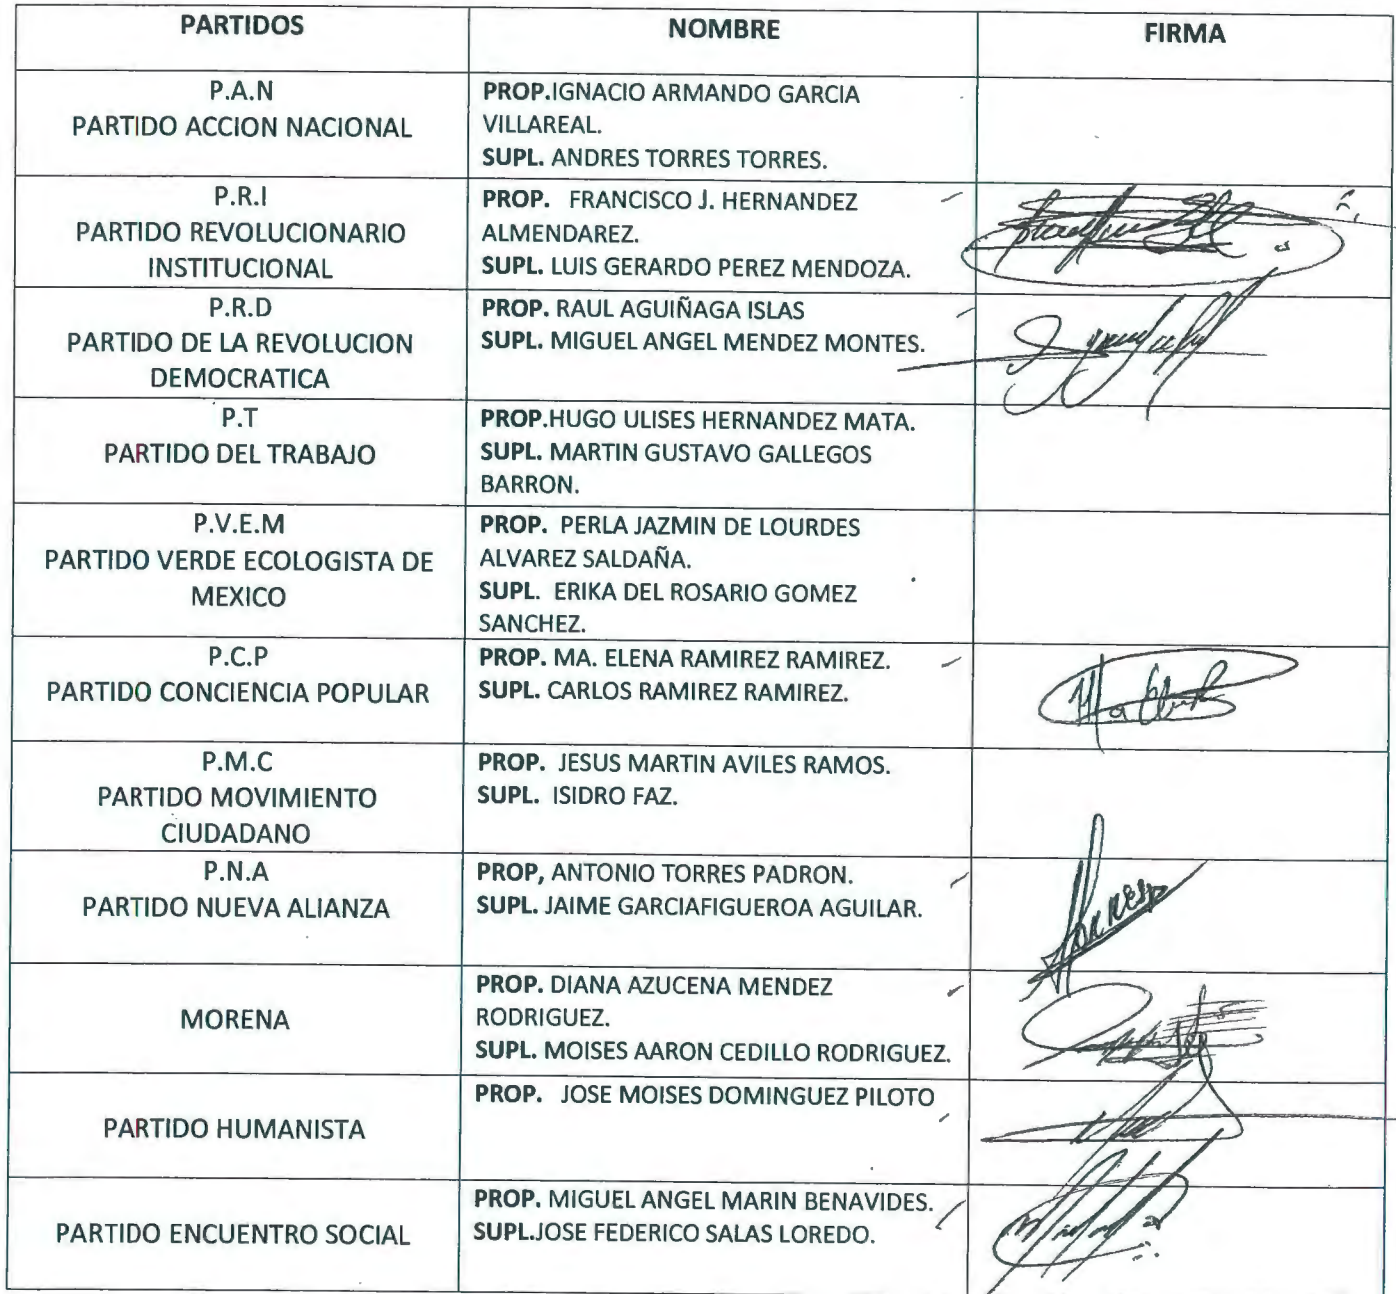 PARTIDOS
NOMBRE
FIRMA
P.A.N
PARTIDO ACCION NACIONAL
PROP.IGNACIO ARMANDO GARCIA
VILLAREAL.
SUPL. ANDRES TORRES TORRES.
P.R.I
PARTIDO REVOLUCIONARIO
INSTITUCIONAL
PROP. FRANCISCO J. HERNANDEZ
ALMENDAREZ.
SUPL. LUIS GERARDO PEREZ MENDOZA.
P.R.D
PARTIDO DE LA REVOLUCION
DEMOCRATICA
PROP. RAUL AGUIÑAGA ISLAS
SUPL. MIGUEL ANGEL MENDEZ MONTES.
P.T
PARTIDO DEL TRABAJO
PROP.HUGO ULISES HERNANDEZ MATA.
SUPL. MARTIN GUSTAVO GALLEGOS
BARRON.
P.V.E.M
PARTIDO VERDE ECOLOGISTA DE
MEXICO
PROP. PERLA JAZMIN DE LOURDES
ALVAREZ SALDAÑA.
SUPL. ERIKA DEL ROSARIO GOMEZ
SANCHEZ.
P.C.P
PARTIDO CONCIENCIA POPULAR
PROP. MA. ELENA RAMIREZ RAMIREZ.
SUPL. CARLOS RAMIREZ RAMIREZ.
P.M.C
PARTIDO MOVIMIENTO
CIUDADANO
PROP. JESUS MARTIN AVILES RAMOS.
SUPL. ISIDRO FAZ.
P.N.A
PARTIDO NUEVA ALIANZA
PROP, ANTONIO TORRES PADRON.
SUPL. JAIME GARCIAFIGUEROA AGUILAR.
MORENA
PROP. DIANA AZUCENA MENDEZ
RODRIGUEZ.
SUPL. MOISES AARON CEDILLO RODRIGUEZ.
PARTIDO HUMANISTA
PROP. JOSE MOISES DOMINGUEZ PILOTO
PARTIDO ENCUENTRO SOCIAL
PROP. MIGUEL ANGEL MARIN BENAVIDES.
SUPL.JOSE FEDERICO SALAS LOREDO.